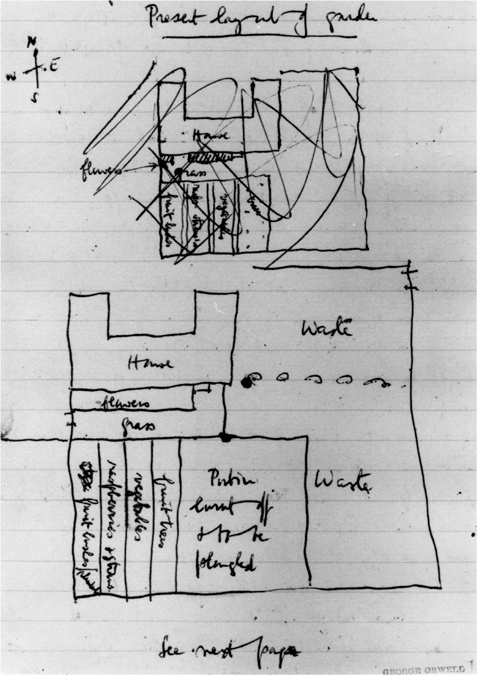 Present layout of garden
N
W E
S
House
flowers
grass
fruit bushes
vegetables
Waste
House
flowers
grass
fruit bushes
raspberries & strawbs
vegetables
fruit trees
Patch
burnt off
& to be
ploughed
Waste
See next page
GEORGE ORWELL